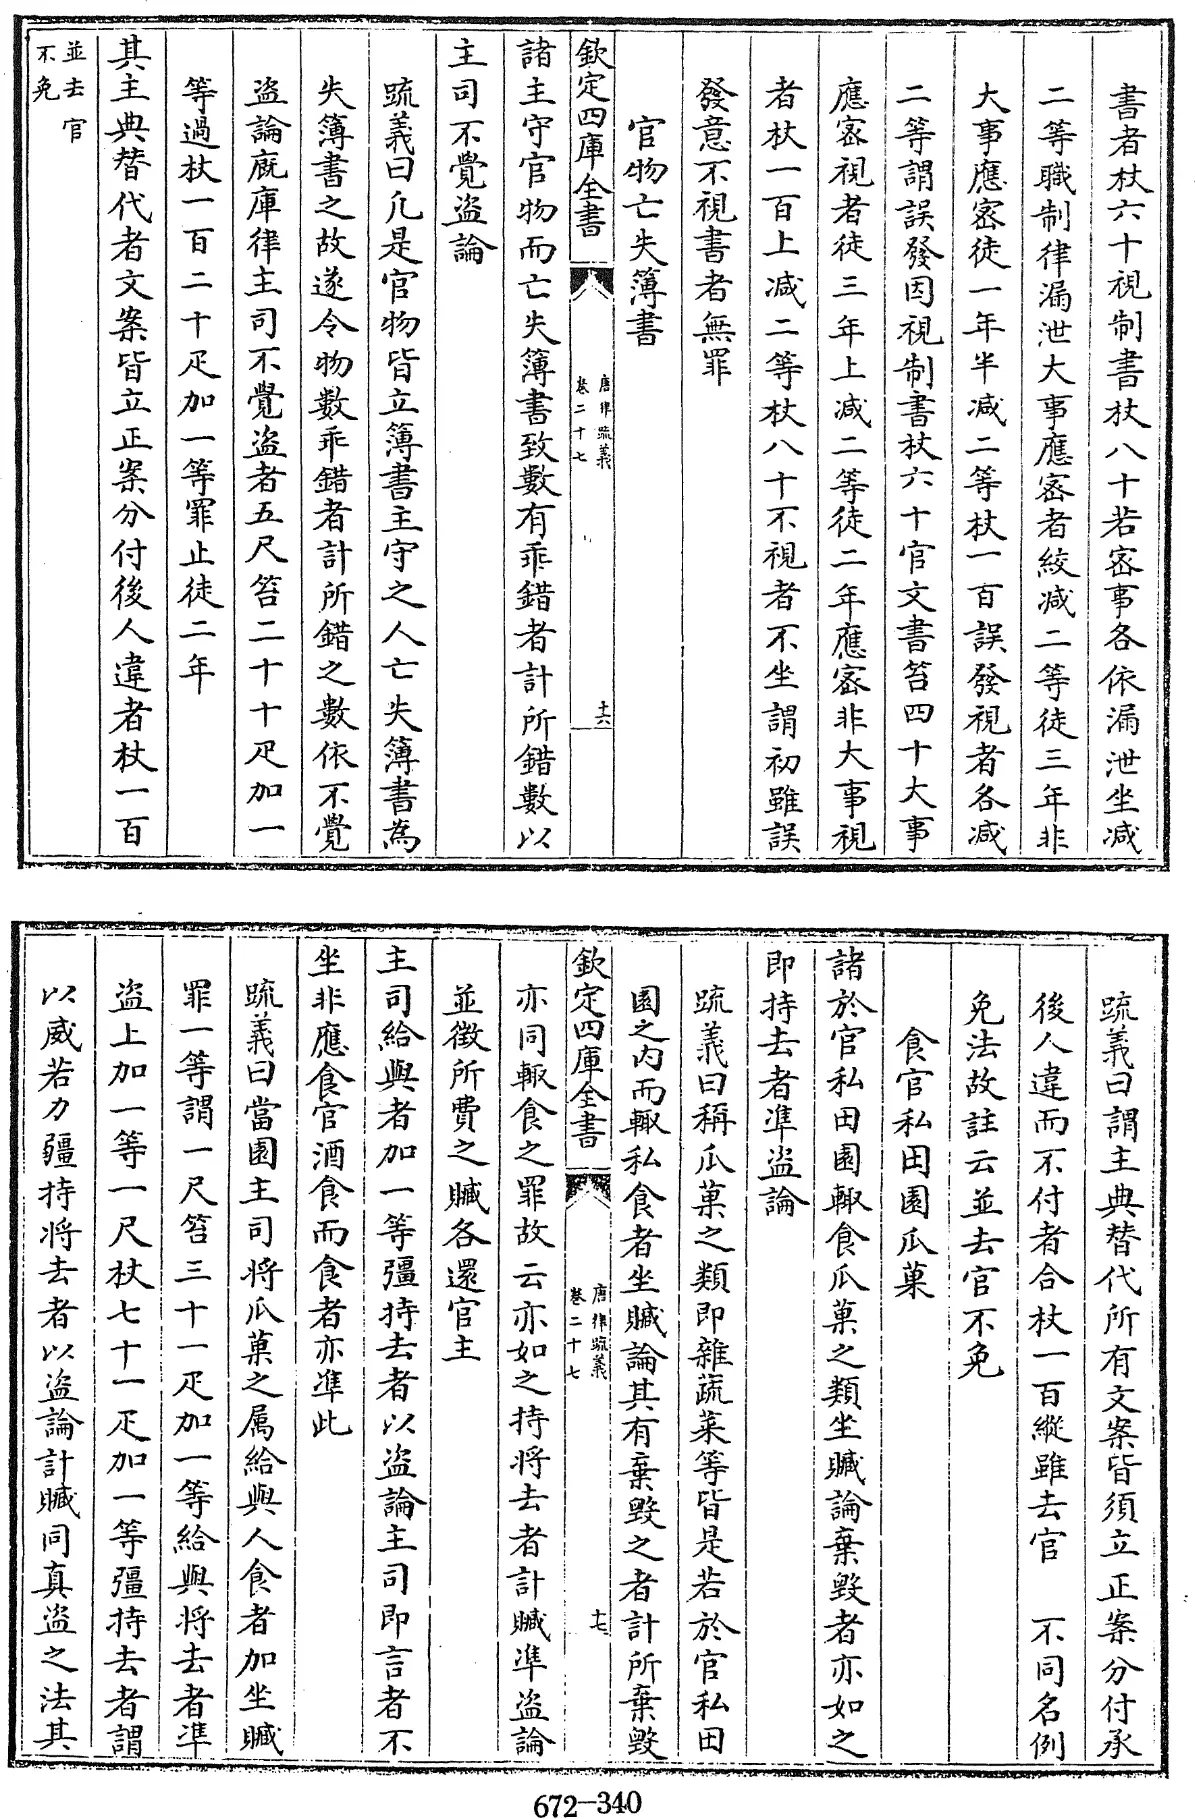 書者杖六十視制書杖八十若宻事各依漏泄坐减
二等職制律漏泄大事應宻者絞减二等徒三年非
大事應宻徒一年半减二等杖一百誤發視者各减
二等謂誤發因視制書杖六十官文書笞四十大事
應宻視者徒三年上减二等徒二年應宻非大事視
者杖一百上减二等杖八十不視者不坐謂初雖誤
發意不視書者無罪
官物亡失簿書
欽定四庫全書
唐律疏義
卷二十七
十六
諸主守官物而亡失簿書致數有乖錯者計所錯數以
主司不覺盗論
疏義曰凡是官物皆立簿書主守之人亡失簿書為
失簿書之故遂令物數乖錯者計所錯之數依不覺
盗論廐庫律主司不覺盗者五尺笞二十十疋加一
等過杖一百二十疋加一等罪止徒二年
其主典替代者文案皆立正案分付後人違者杖一百
並去官
不免
疏義曰謂主典替代所有文案皆須立正案分付承
後人違而不付者合杖一百縱雖去官 不同名例
免法故註云並去官不免
食官私田園瓜菓
諸於官私田園輙食瓜菓之類坐贓論棄毀者亦如之
即持去者凖盗論
疏義曰稱瓜菓之類即雜蔬菜等皆是若於官私田
園之内而輙私食者坐贓論其有棄毀之者計所棄毀
欽定四庫全書
唐律疏義
卷二十七
十七
亦同輙食之罪故云亦如之持將去者計贓凖盗論
並徵所費之贓各還官主
主司給與者加一等彊持去者以盗論主司即言者不
坐非應食官酒食而食者亦凖此
疏義曰當園主司將瓜菓之属給與人食者加坐贓
罪一等謂一尺笞三十一疋加一等給與將去者凖
盗上加一等一尺杖七十一疋加一等彊持去者謂
以威若力彊持將去者以盗論計贓同真盗之法其
672-340